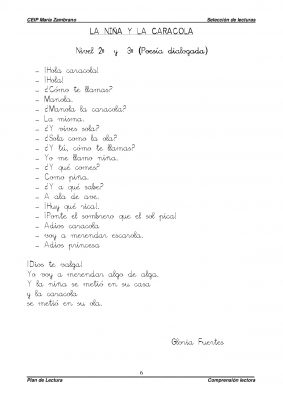 CEIP María Zambrano Selección de lecturas
LA NIÑA Y LA CARACOLA
Nivel 2º y 3º (Poesía dialogada)
– ¡Hola caracola!
– ¡Hola!
– ¿Cómo te llamas?
– Manola.
– ¿Manola la caracola?
– La misma.
– ¿Y vives sola?
– ¿Sola como la ola?
– ¿Y tú, cómo te llamas?
– Yo me llamo niña.
– ¿Y qué comes?
– Como piña.
– ¿Y a qué sabe?
– A ala de ave.
– ¡Huy qué rica!.
– ¡Ponte el sombrero que el sol pica!
– Adios caracola
– voy a merendar escarola.
– Adios princesa
¡Dios te valga!
Yo voy a merendar algo de alga.
Y la niña se metió en su casa
y la caracola
se metió en su ola.
Gloria Fuertes
6
Plan de Lectura Comprensión lectora